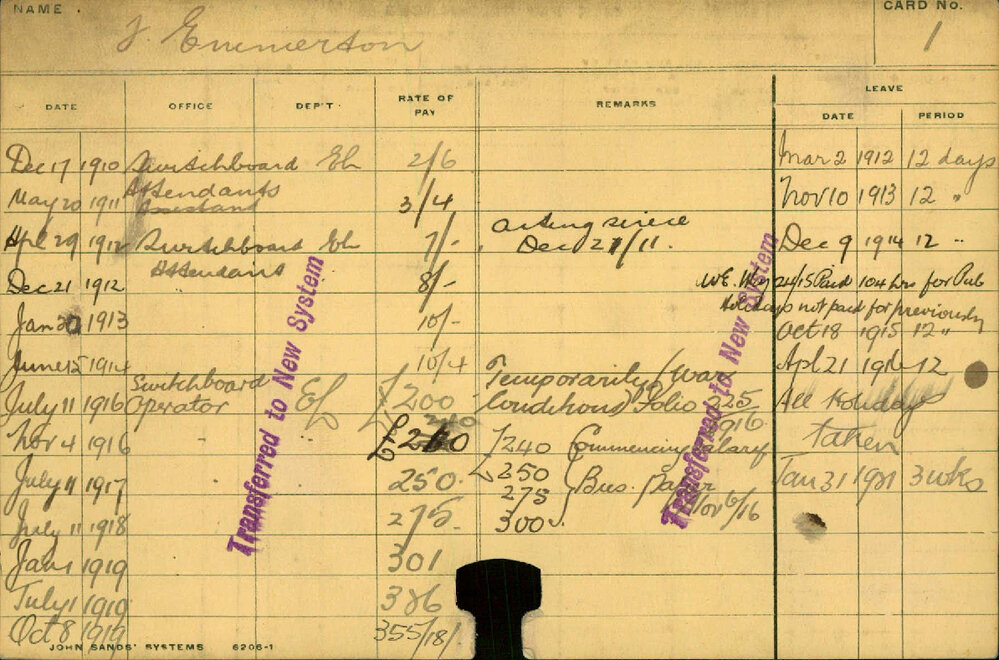 NAME
J. Emmerton
CARD No.
1
DATE OFFICE DEP'T RATE OF PAY REMARKS LEAVE
DATE PERIOD
Dec 17 1910 Switchboard El 2/6 Mar 2 1912 12 days
Attendants
May 20 1911 Assistant 3/4 Nov 10 1913 12 "
Apl 29 1912 Switchboard El 7/- acting since Dec 9 1914 12 "
Dec 27/11.
Attendant
Dec 21 1912 8/- W.E. 24/15 Paid 104 hrs for Pub
Holidays not paid for previously
Jan 30 1913 10/- Oct 18 1915 12 "
June 12 1914 10/4 Apl 21 1916 12
Switchboard Temporarily (War
July 11 1916 Operator El £200 Conditions) Folio 525 All Holidays
1916
240
Nov 4 1916 " " £210 £240 Commencing salary taken
July 11 1917 250 250 Jan 31 1921 3 wks
275 Bus. Paper
Nov 6/16
July 11 1918 275 300
Jan 1 1919 301
July 1 1919 386
Oct 8 1919 355/18/-
Transferred to New System
Transferred to New System
JOHN SANDS' SYSTEMS 6206-1